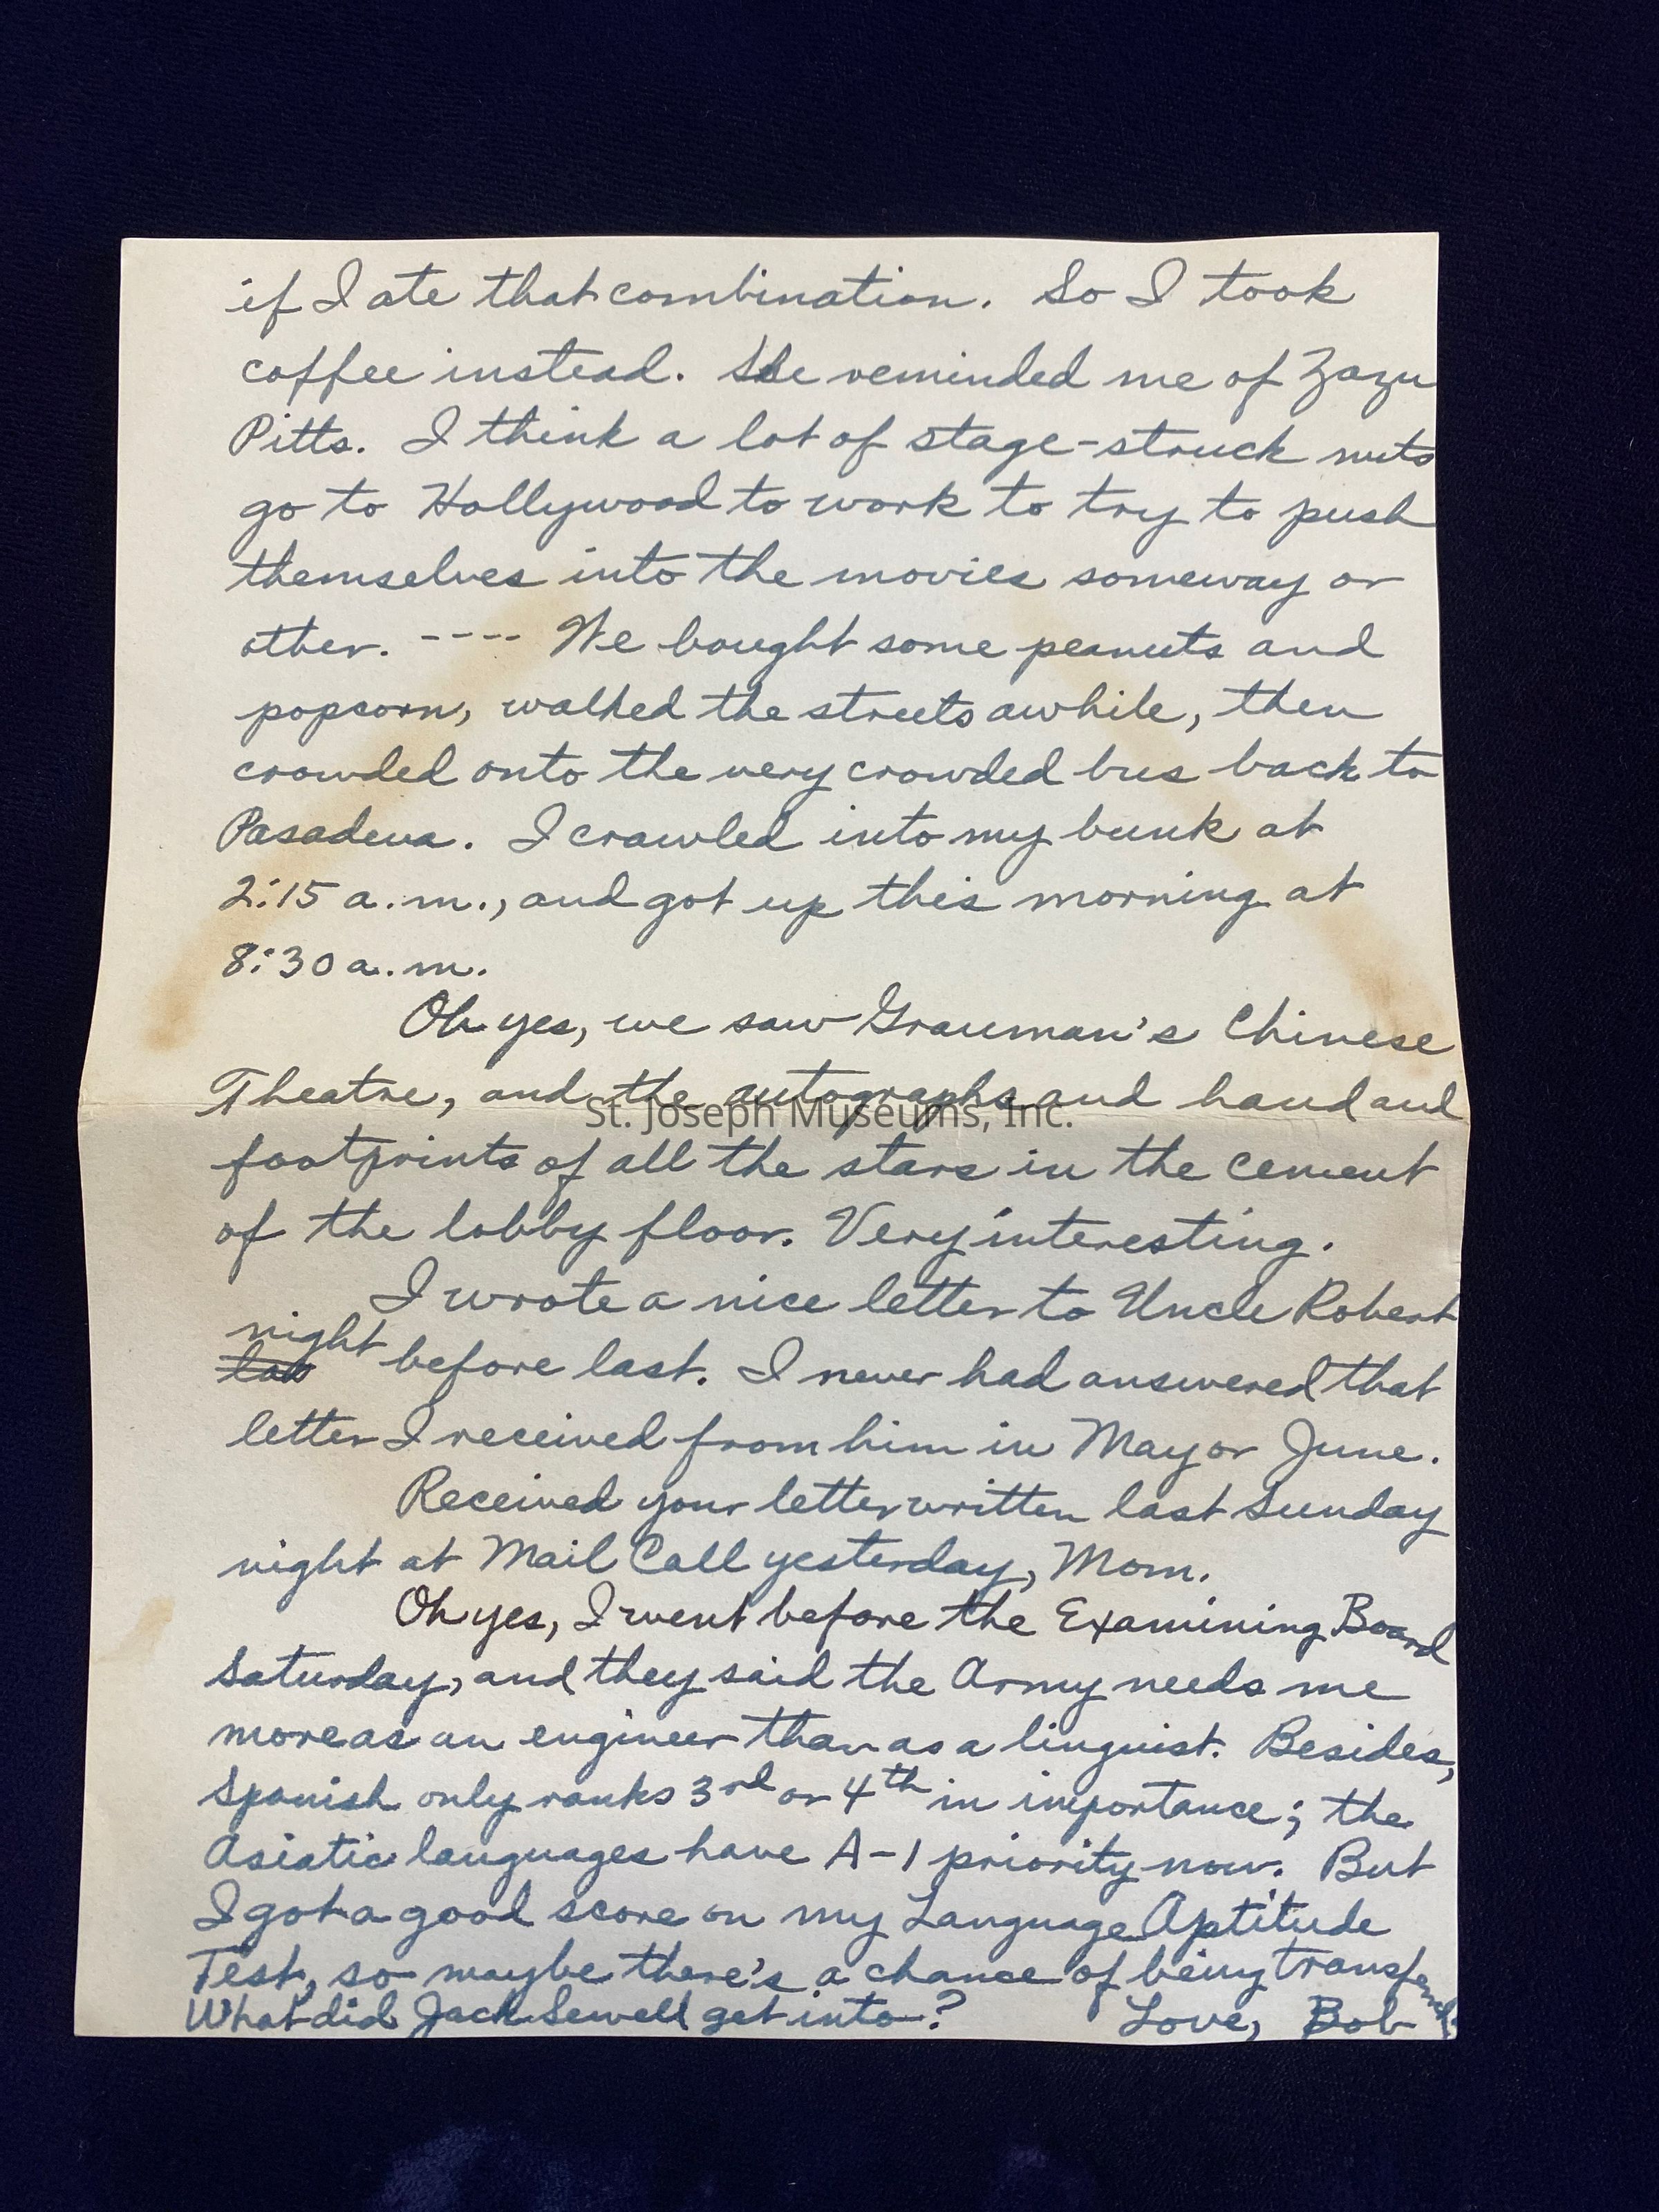 if I ate that combination. So I took
coffee instead. She reminded me of Zazu
Pitts. I think a lot of stage-struck nuts
go to Hollywood to work to try to push
themselves into the movies someway or
other. ---- We bought some peanuts and
popcorn, walked the streets awhile, then
crowded onto the very crowded bus back to
Pasadena. I crawled into my bunk at
2:15 a.m., and got up this morning at
8:30 a.m.
Oh yes, we saw Grauman's Chinese
Theatre, and the autographs and hand and
St. Joseph Museums, Inc.
footprints of all the stars in the cement
of the lobby floor. Very interesting.
I wrote a nice letter to Uncle Robert
night before last. I never had answered that
letter I received from him in May or June.
Received your letter written last Sunday
night at Mail Call yesterday, Mom.
Oh yes, I went before the Examining Board
Saturday, and they said the Army needs me
more as an engineer than as a linguist. Besides,
Spanish only ranks 3rd or 4th in importance; the
Asiatic languages have A-1 priority now. But
I got a good score on my Language Aptitude
Test, so maybe there's a chance of being transferred.
What did Jack Sewell get into? Love, Bob